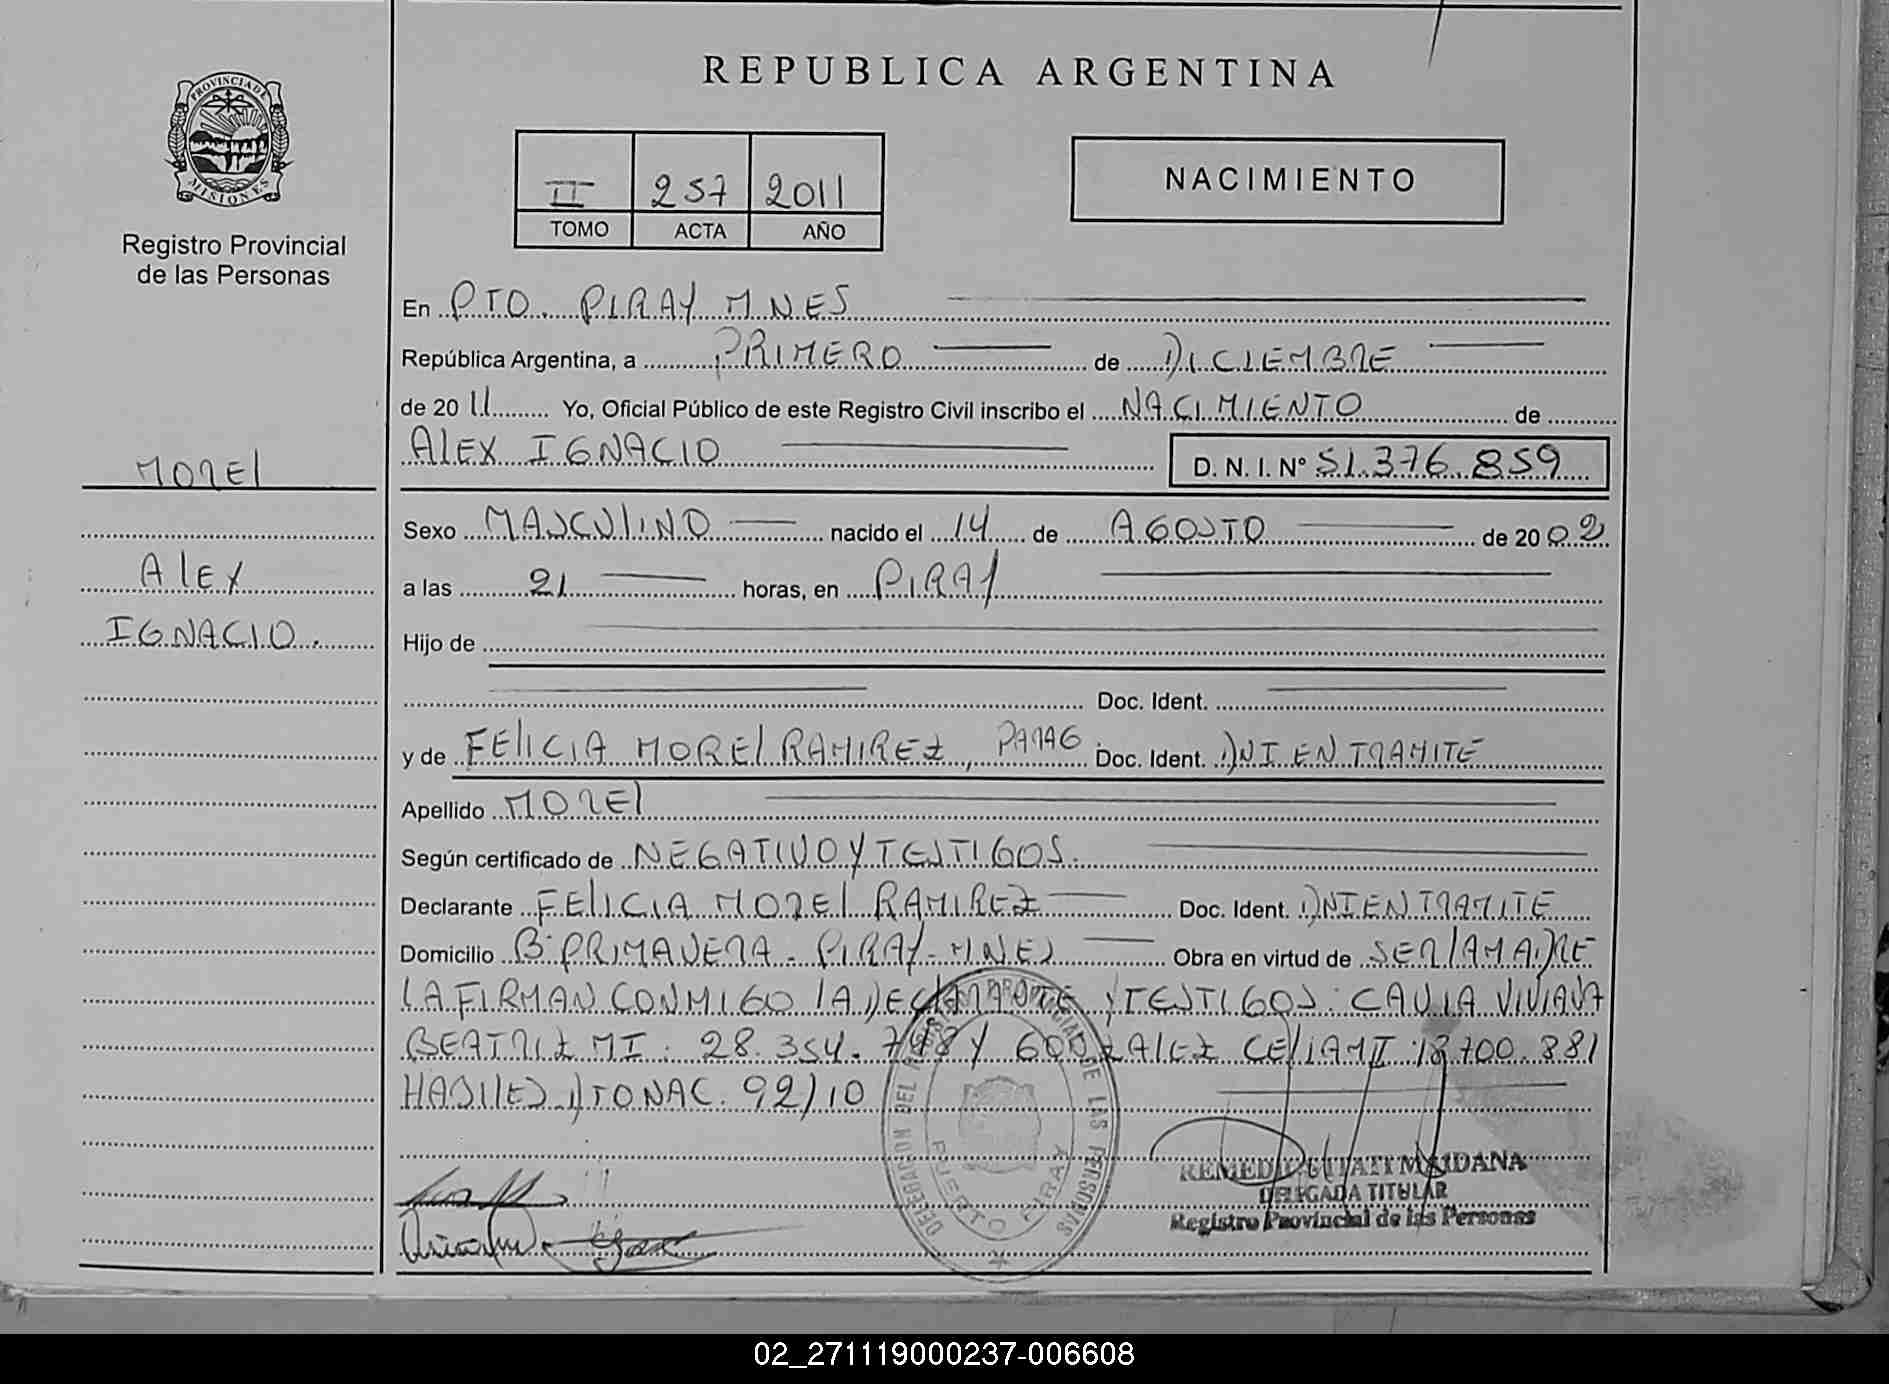 REPUBLICA ARGENTINA
PROVINCIA DE MISIONES
Registro Provincial
de las Personas
II 257 2011
TOMO ACTA AÑO
NACIMIENTO
En PTO. PIRAY MNES
República Argentina, a PRIMERO de DICIEMBRE
de 20 11 Yo, Oficial Público de este Registro Civil inscribo el NACIMIENTO de
ALEX IGNACIO D. N. I. Nº 51.376.859
MOREL
ALEX
IGNACIO.
Sexo MASCULINO nacido el 14 de AGOSTO de 20 02
a las 21 horas, en PIRAY
Hijo de
Doc. Ident.
y de FELICIA MOREL RAMIREZ, PARAG. Doc. Ident. DNI EN TRAMITE
Apellido MOREL
Según certificado de NEGATIVO Y TESTIGOS.
Declarante FELICIA MOREL RAMIREZ Doc. Ident. DNI EN TRAMITE
Domicilio Bº PRIMAVERA - PIRAY - MNES Obra en virtud de SER LA MADRE
LA FIRMAN CONMIGO LA DECLARANTE Y TESTIGOS: VIVIANA
BEATRIZ MI. 28.354.798 Y GONZALEZ CELIA MI 18.700.881
DTO NAC. 92/10
DELEGACION DEL REGISTRO PROVINCIAL DE LAS PERSONAS
PUERTO PIRAY
MAIDANA
DELEGADA TITULAR
Registro Provincial de las Personas
02_271119000237-006608